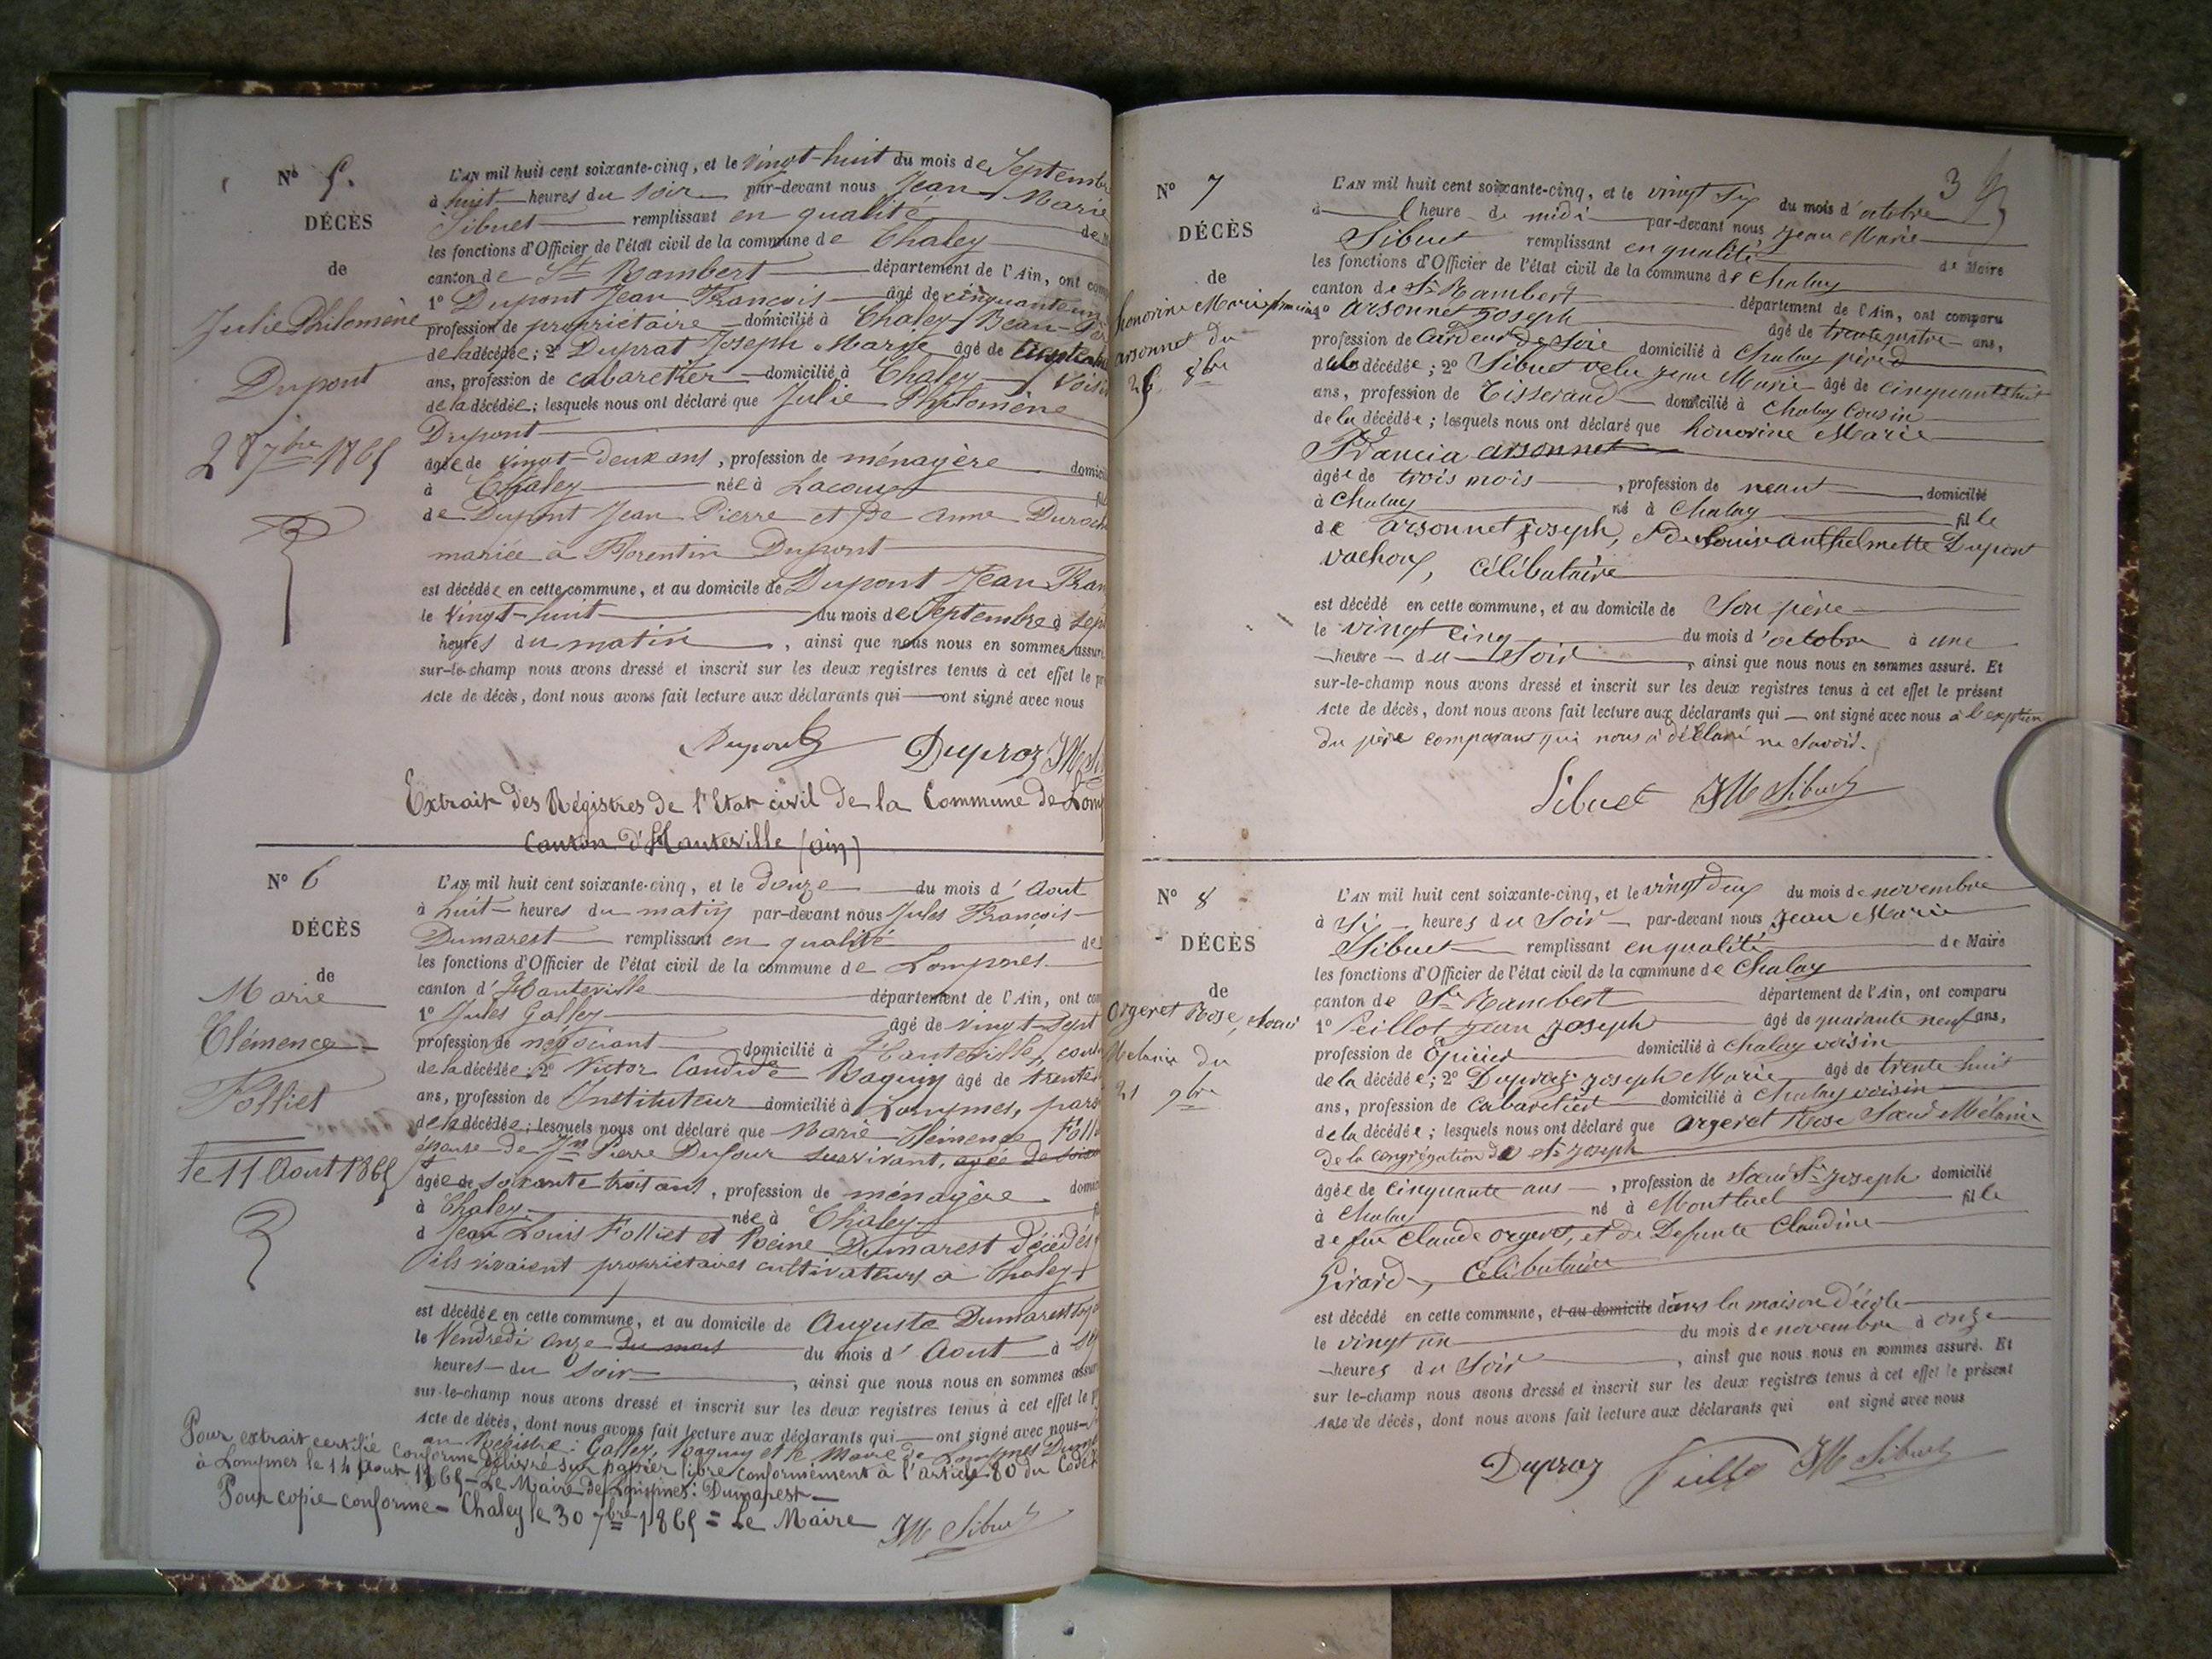 N° 5.
DÉCÈS
de
Julie Philomène
Dupont
28 7bre 1865
L'AN mil huit cent soixante-cinq, et le vingt-huit du mois de Septembre
à huit heures du soir par-devant nous Jean Marie
Sibuet remplissant en qualité de
les fonctions d'Officier de l'état civil de la commune de Chaley
canton de St Rambert département de l'Ain, ont
1° Dupont Jean François âgé de cinquante
profession de propriétaire domicilié à Chaley Beau-
de la décédée; 2° Duprat Joseph Marie âgé de
ans, profession de cabaretier domicilié à Chaley Voisin
de la décédée; lesquels nous ont déclaré que Julie Philomène
Dupont
âgée de vingt-deux ans, profession de ménagère
à Chaley née à Lacoux
de Dupont Jean Pierre et de Anne
mariée à Florentin Dupont
est décédée en cette commune, et au domicile de Dupont Jean
le vingt-huit du mois de Septembre à
heures du matin, ainsi que nous nous en sommes
sur-le-champ nous avons dressé et inscrit sur les deux registres tenus à cet effet le
Acte de décès, dont nous avons fait lecture aux déclarants qui ont signé avec nous
Dupont Duproz JM
Extrait des Régistres de l'Etat civil de la Commune de
Canton d'Hauteville (ain)
N° 6
DÉCÈS
de
Marie
Clémence
Folliet
le 11 Aout 1865
L'AN mil huit cent soixante-cinq, et le douze du mois d'Aout
à huit heures du matin par-devant nous Jules François
Dumarest remplissant en qualité de
les fonctions d'Officier de l'état civil de la commune de Lompnes
canton d'Hauteville département de l'Ain, ont
1° Jules Galley âgé de vingt-sept
profession de négociant domicilié à Hauteville,
de la décédée; 2° Victor Candide Baquin âgé de
ans, profession de Instituteur domicilié à Lompnes,
de la décédée; lesquels nous ont déclaré que Marie Clémence
épouse de Jn Pierre Dufour survivant, agée de
âgée de soixante trois ans, profession de ménagère
à Chaley née à Chaley
d Jean Louis Folliet et Reine Dumarest décédés
ils vivaient propriétaires cultivateurs à Chaley
est décédée en cette commune, et au domicile de Auguste Dumarest
le Vendredi onze du mois du mois d'Aout à
heures du soir, ainsi que nous nous en sommes
sur-le-champ nous avons dressé et inscrit sur les deux registres tenus à cet effet le
Acte de décès, dont nous avons fait lecture aux déclarants qui ont signé avec nous
au Registre: Galley, Baquin et le Maire de Lompnes
Pour extrait certifié conforme délivré sur papier libre conformément à l'article 80 du Code
à Lompnes le 14 Aout 1865 Le Maire de Lompnes: Dumarest
Pour copie conforme - Chaley le 30 7bre 1865 = Le Maire JM Sibuet
3
N° 7
DÉCÈS
de
honorine Marie francia
arsonnet du
26 8bre
L'AN mil huit cent soixante-cinq, et le vingt Six du mois d'octobre
à heure de midi par-devant nous Jean Marie
Sibuet remplissant en qualité de Maire
les fonctions d'Officier de l'état civil de la commune de Chaley
canton de St Rambert département de l'Ain, ont comparu
1° arsonnet Joseph âgé de trente quatre ans,
profession de Cardeur de Soie domicilié à Chaley père
de la décédée; 2° Sibuet Jean Marie âgé de cinquante huit
ans, profession de Tisserand domicilié à Chaley Cousin
de la décédée; lesquels nous ont déclaré que honorine Marie
Francia arsonnet
âgée de trois mois, profession de neant domicilié
à Chaley né à Chaley fille
de arsonnet Joseph, et de Louise anthelmette Dupont
vachoux, Célibataire
est décédé en cette commune, et au domicile de Son père
le vingt cinq du mois d'octobre à une
heure du Soir, ainsi que nous nous en sommes assuré. Et
sur-le-champ nous avons dressé et inscrit sur les deux registres tenus à cet effet le présent
Acte de décès, dont nous avons fait lecture aux déclarants qui ont signé avec nous à l'exeption
du père comparant qui nous à déclaré ne Savoir.
Sibuet JM Sibuet
N° 8
DÉCÈS
de
Orgeret Rose, Soeur
Melanie du
21 9bre
L'AN mil huit cent soixante-cinq, et le vingt deux du mois de novembre
à Si heures du Soir par-devant nous Jean Marie
Sibuet remplissant en qualité de Maire
les fonctions d'Officier de l'état civil de la commune de Chaley
canton de St Rambert département de l'Ain, ont comparu
1° Peillot Jean Joseph âgé de quarante neuf ans,
profession de Epicier domicilié à Chaley voisin
de la décédée; 2° Duproz Joseph Marie âgé de trente huit
ans, profession de Cabaretier domicilié à Chaley voisin
de la décédée; lesquels nous ont déclaré que Orgeret Rose Soeur Mélanie
De la Congrégation de St Joseph
âgée de cinquante ans, profession de Soeur St Joseph domicilié
à Chaley né à Montluel fille
de feu Claude Orgeret, et de Defunte Claudine
Girard, Célibataire
est décédé en cette commune, et au domicile dans la maison d'école
le vingt un du mois de novembre à onze
heures du Soir, ainsi que nous nous en sommes assuré. Et
sur le-champ nous avons dressé et inscrit sur les deux registres tenus à cet effet le présent
Acte de décès, dont nous avons fait lecture aux déclarants qui ont signé avec nous
Duproz JM Sibuet